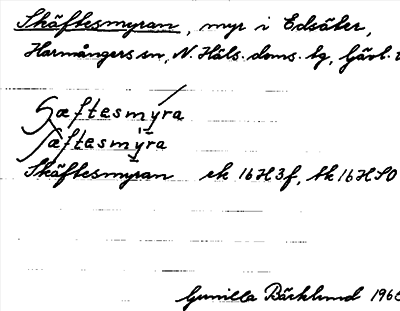 Skäftesmyran, myr i Edsäter,
Harmångers sn, N. Häls. doms. tg, Gävl.
Sæftesmyra
sæftesmyra
Skäftesmyran ek 16H3f, tk 16HSO
Gunilla Bäcklund 196